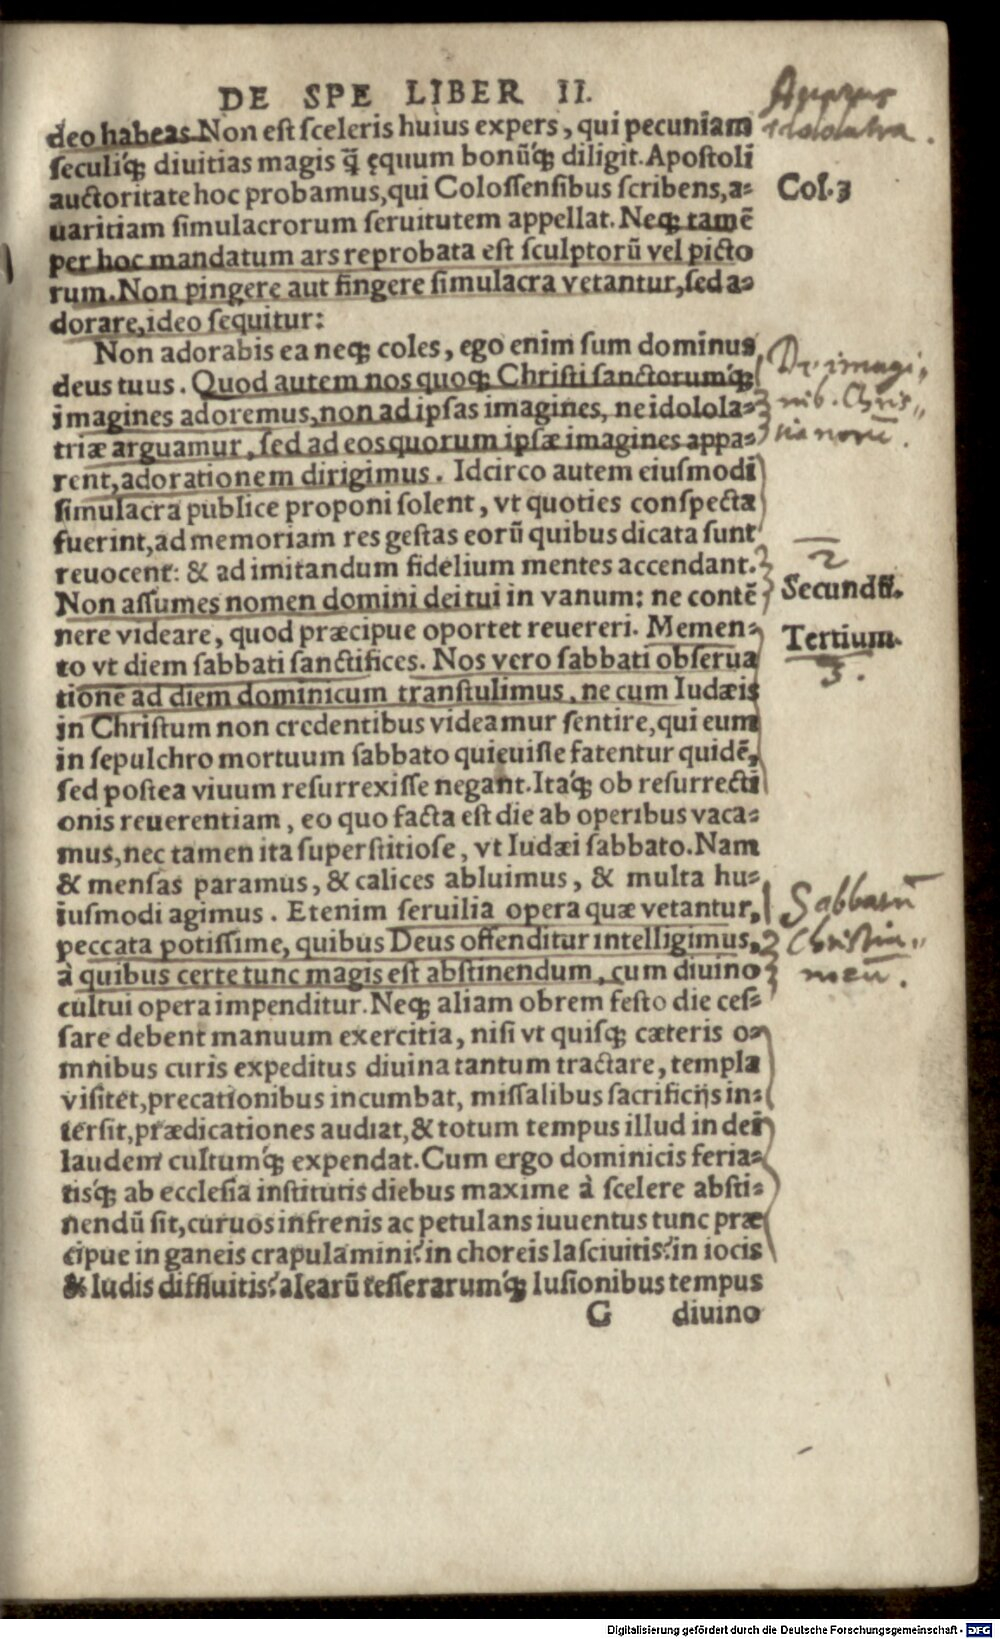 DE SPE LIBER II.
deo habeas. Non est sceleris huius expers, qui pecuniam
seculiq́; diuitias magis q̃ ęquum bonũq́; diligit. Apostoli
auctoritate hoc probamus, qui Colossensibus scribens, a-
uaritiam simulacrorum seruitutem appellat. Neq; tamẽ
per hoc mandatum ars reprobata est sculptorũ vel picto
rum. Non pingere aut fingere simulacra vetantur, sed a-
dorare, ideo sequitur:
Non adorabis ea neq; coles, ego enim sum dominus
deus tuus. Quod autem nos quoq; Christi sanctorumq́;
imagines adoremus, non ad ipsas imagines, ne idolola-
triæ arguamur, sed ad eos quorum ipsæ imagines appa-
rent, adorationem dirigimus. Idcirco autem eiusmodi
simulacra publice proponi solent, vt quoties conspecta
fuerint, ad memoriam res gestas eorũ quibus dicata sunt
reuocent: & ad imitandum fidelium mentes accendant.
Non assumes nomen domini dei tui in vanum: ne contẽ
nere videare, quod præcipue oportet reuereri. Memen-
to vt diem sabbati sanctifices. Nos vero sabbati obserua
tionẽ ad diem dominicum transtulimus, ne cum Iudæis
in Christum non credentibus videamur sentire, qui eum
in sepulchro mortuum sabbato quieuisse fatentur quidẽ,
sed postea viuum resurrexisse negant. Itaq́; ob resurrecti
onis reuerentiam, eo quo facta est die ab operibus vaca-
mus, nec tamen ita superstitiose, vt Iudæi sabbato. Nam
& mensas paramus, & calices abluimus, & multa hu-
iusmodi agimus. Etenim seruilia opera quæ vetantur,
peccata potissime, quibus Deus offenditur intelligimus,
à quibus certe tunc magis est abstinendum, cum diuino
cultui opera impenditur. Neq; aliam obrem festo die ces-
sare debent manuum exercitia, nisi vt quisq; cæteris o-
mnibus curis expeditus diuina tantum tractare, templa
visitet, precationibus incumbat, missalibus sacrificijs in-
tersit, prædicationes audiat, & totum tempus illud in dei
laudem cultumq́; expendat. Cum ergo dominicis feria-
tisq́; ab ecclesia institutis diebus maxime à scelere absti-
nendũ sit, cur uos infrenis ac petulans iuuentus tunc præ
cipue in ganeis crapulamini? in choreis lasciuitis? in iocis
& ludis diffluitis? alearũ tesserarumq́; lusionibus tempus
G diuino
Idolatra.
Col. 3
De imagi,,
nib. Chris,,
tianorũ.
2
Secundũ.
Tertium.
3.
Sabbatũ
Christia,,
neũ.
Digitalisierung gefördert durch die Deutsche Forschungsgemeinschaft - DFG